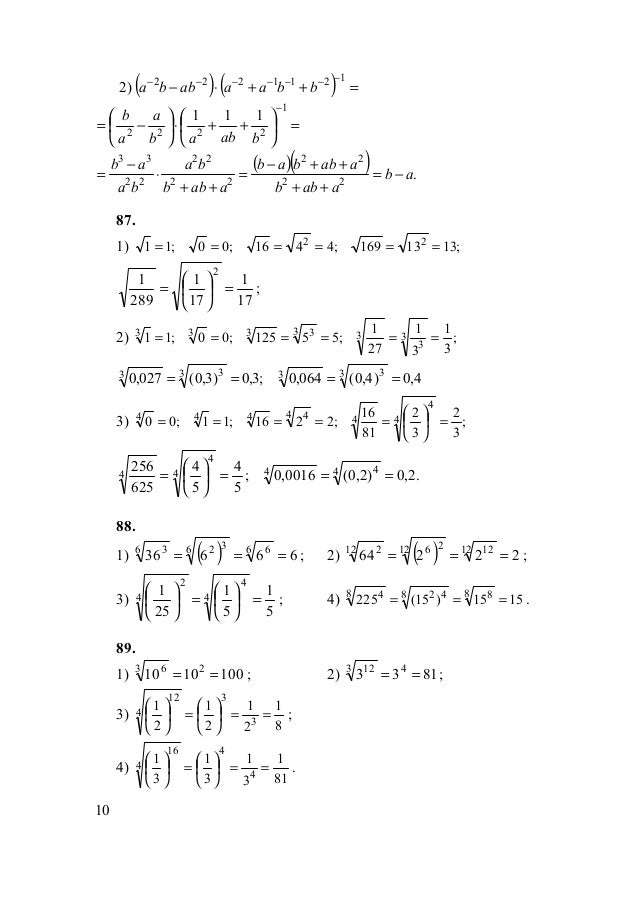 2) (a⁻²b − ab⁻²)·(a⁻² + a⁻¹b⁻¹ + b⁻²)⁻¹ =
= (b/a² − a/b²)·(1/a² + 1/ab + 1/b²)⁻¹ =
= (b³ − a³)/(a²b²) · (a²b²)/(b² + ab + a²) = ((b − a)(b² + ab + a²))/(b² + ab + a²) = b − a.
87.
1) √1 = 1; √0 = 0; √16 = √4² = 4; √169 = √13² = 13;
√(1/289) = √((1/17)²) = 1/17;
2) ∛1 = 1; ∛0 = 0; ∛125 = ∛5³ = 5; ∛(1/27) = ∛(1/3³) = 1/3;
∛0,027 = ∛(0,3)³ = 0,3; ∛0,064 = ∛(0,4)³ = 0,4
3) ∜0 = 0; ∜1 = 1; ∜16 = ∜2⁴ = 2; ∜(16/81) = ∜((2/3)⁴) = 2/3;
∜(256/625) = ∜((4/5)⁴) = 4/5; ∜0,0016 = ∜(0,2)⁴ = 0,2.
88.
1) ⁶√36³ = ⁶√(6²)³ = ⁶√6⁶ = 6; 2) ¹²√64² = ¹²√(2⁶)² = ¹²√2¹² = 2;
3) ∜((1/25)²) = ∜((1/5)⁴) = 1/5; 4) ⁸√225⁴ = ⁸√(15²)⁴ = ⁸√15⁸ = 15.
89.
1) ∛10⁶ = 10² = 100; 2) ∛3¹² = 3⁴ = 81;
3) ∜((1/2)¹²) = (1/2)³ = 1/2³ = 1/8;
4) ∜((1/3)¹⁶) = (1/3)⁴ = 1/3⁴ = 1/81.
10